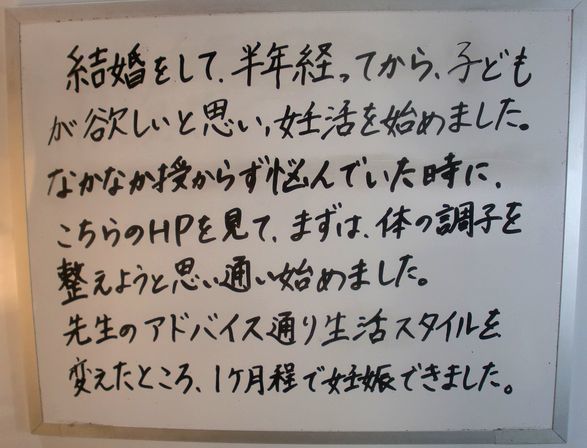 結婚をして、半年経ってから、子ども
が欲しいと思い、妊活を始めました。
なかなか授からず悩んでいた時に、
こちらのHPを見て、まずは、体の調子を
整えようと思い通い始めました。
先生のアドバイス通り生活スタイルを
変えたところ、1ヶ月程で妊娠できました。